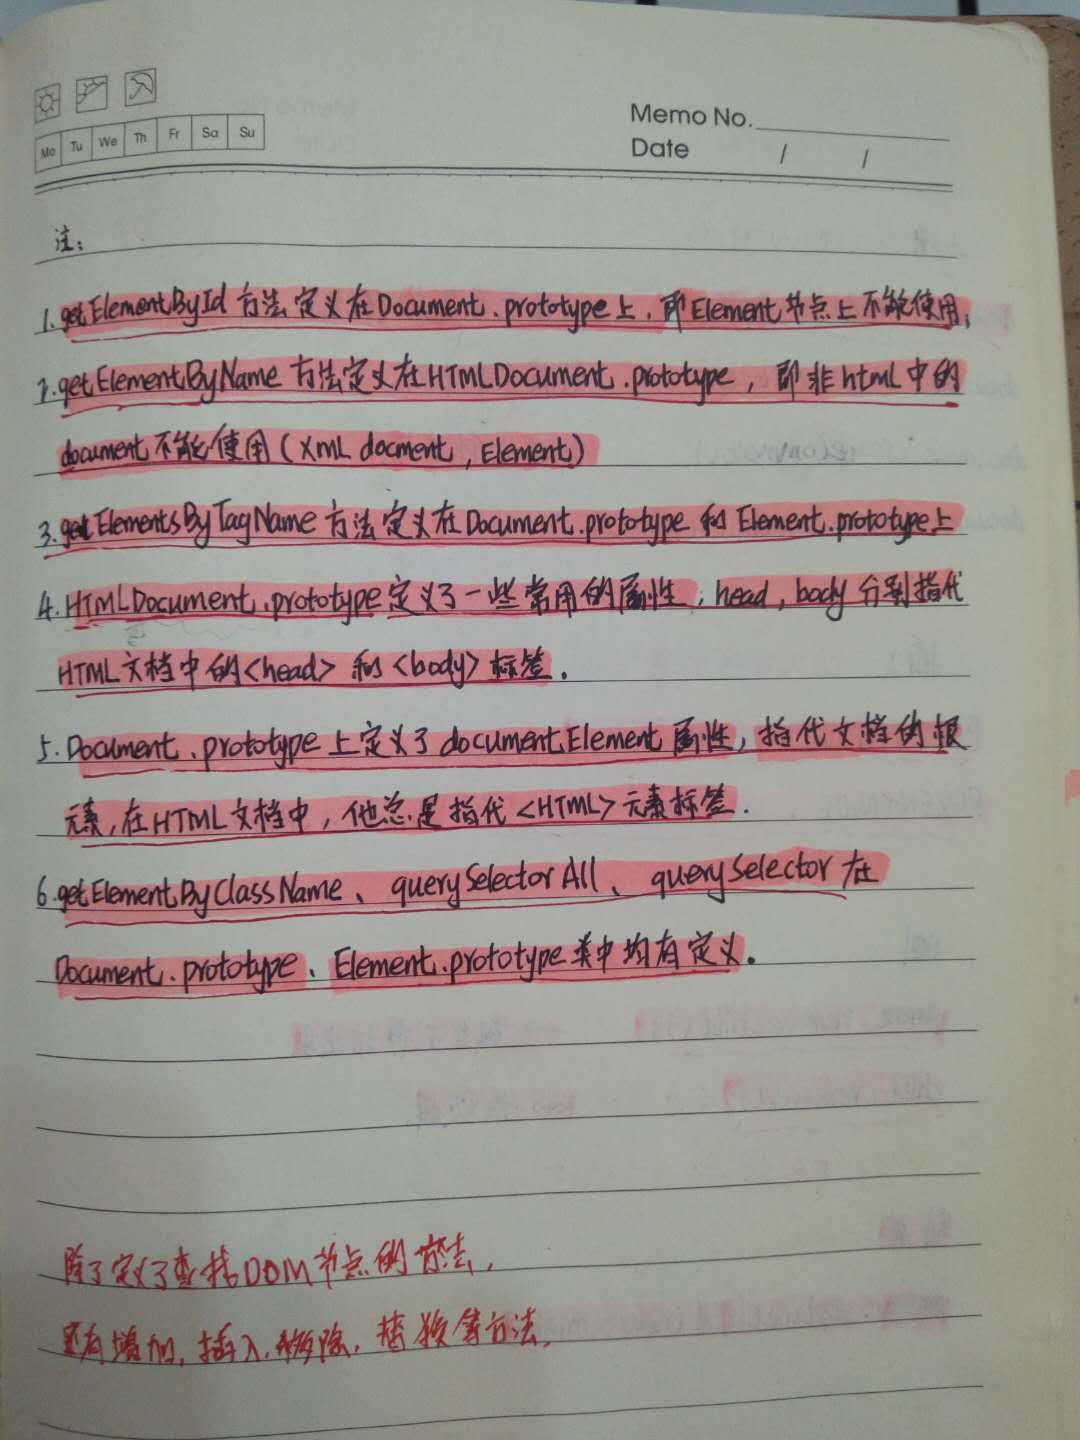 Mo Tu We Th Fr Sa Su
Memo No.
Date / /
注:
1.getElementById 方法定义在Document.prototype上,即Element节点上不能使用,
2.getElementByName 方法定义在HTMLDocument.prototype,即非html中的
document不能使用(XML docment,Element)
3.getElementsByTagName 方法定义在Document.prototype 和 Element.prototype上
4.HTMLDocument.prototype定义了一些常用的属性,head,body 分别指代
HTML文档中的<head> 和 <body> 标签.
5.Document.prototype上定义了documentElement属性,指代文档的根
元素,在HTML文档中,他总是指代<HTML>元素标签.
6.getElementByClassName、querySelectorAll、querySelector在
Document.prototype、Element.prototype类中均有定义.
除了定义了查找DOM节点的方法,
还有增加,插入,移除,替换等方法.